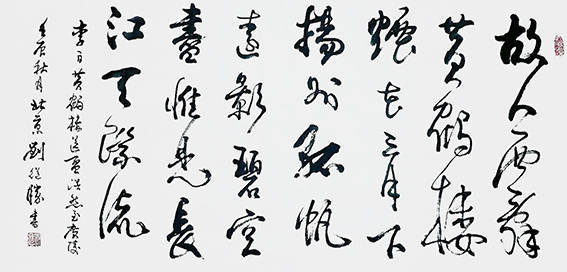 故人西辭
黄鶴楼
煙花三月下
揚州孤帆
遠影碧空
盡惟見長
江天際流
李白黄鶴楼送孟浩然至廣陵
壬辰秋月北京劉從勝書